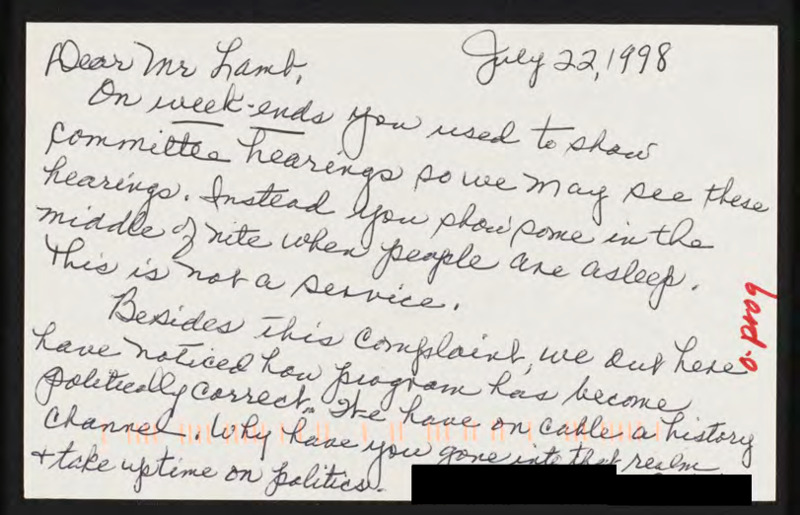 July 22, 1998
Dear Mr Lamb,
On week-ends you used to show
committee hearings so we may see these
hearings. Instead you show some in the
middle of nite when people are asleep.
This is not a service.
Besides this complaint, we out here
have noticed how program has become
politically correct. We have on cable a history
channel. Why have you gone into that realm
+ take up time on politics.
o. prog